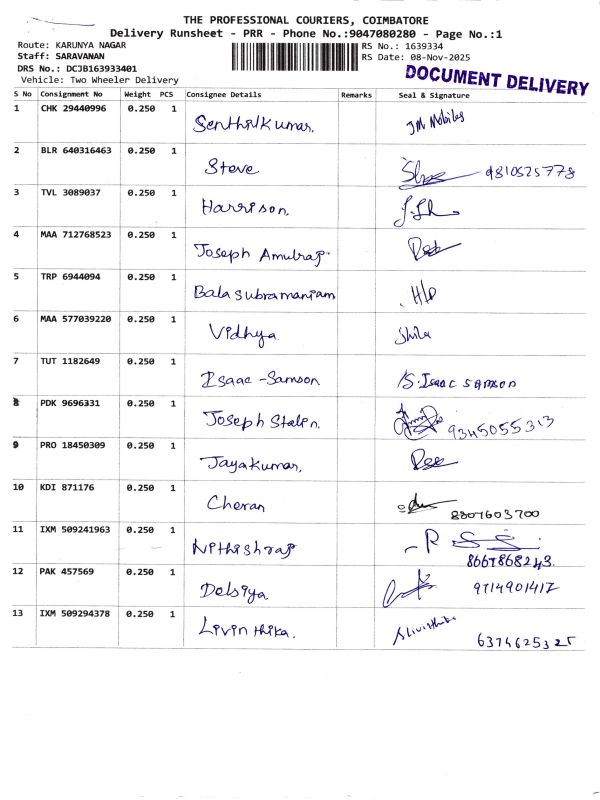 THE PROFESSIONAL COURIERS, COIMBATORE
Delivery Runsheet - PRR - Phone No.:9047080280 - Page No.:1
Route: KARUNYA NAGAR
RS No.: 1639334
Staff: SARAVANAN
RS Date: 08-Nov-2025
DRS No.: DCJB163933401
DOCUMENT DELIVERY
Vehicle: Two Wheeler Delivery
S No Consignment No Weight PCS Consignee Details Remarks Seal & Signature
1 CHK 29440996 0.250 1 Senthilkumar. JM Mobiles
2 BLR 640316463 0.250 1 Steve 9810525778
3 TVL 3089037 0.250 1 Harrison.
4 MAA 712768523 0.250 1 Joseph Amulraj.
5 TRP 6944094 0.250 1 Balasubramaniam H/P
6 MAA 577039220 0.250 1 Vidhya.
7 TUT 1182649 0.250 1 Isaac - Samson S. Isaac samson
8 PDK 9696331 0.250 1 Joseph Stalin. 9345055313
9 PRO 18450309 0.250 1 Jayakumar.
10 KDI 871176 0.250 1 Cheran 8807603700
11 IXM 509241963 0.250 1 Nithishraj 8667868243.
12 PAK 457569 0.250 1 Delsiya. 9714901417
13 IXM 509294378 0.250 1 Livinthika. 6374625325